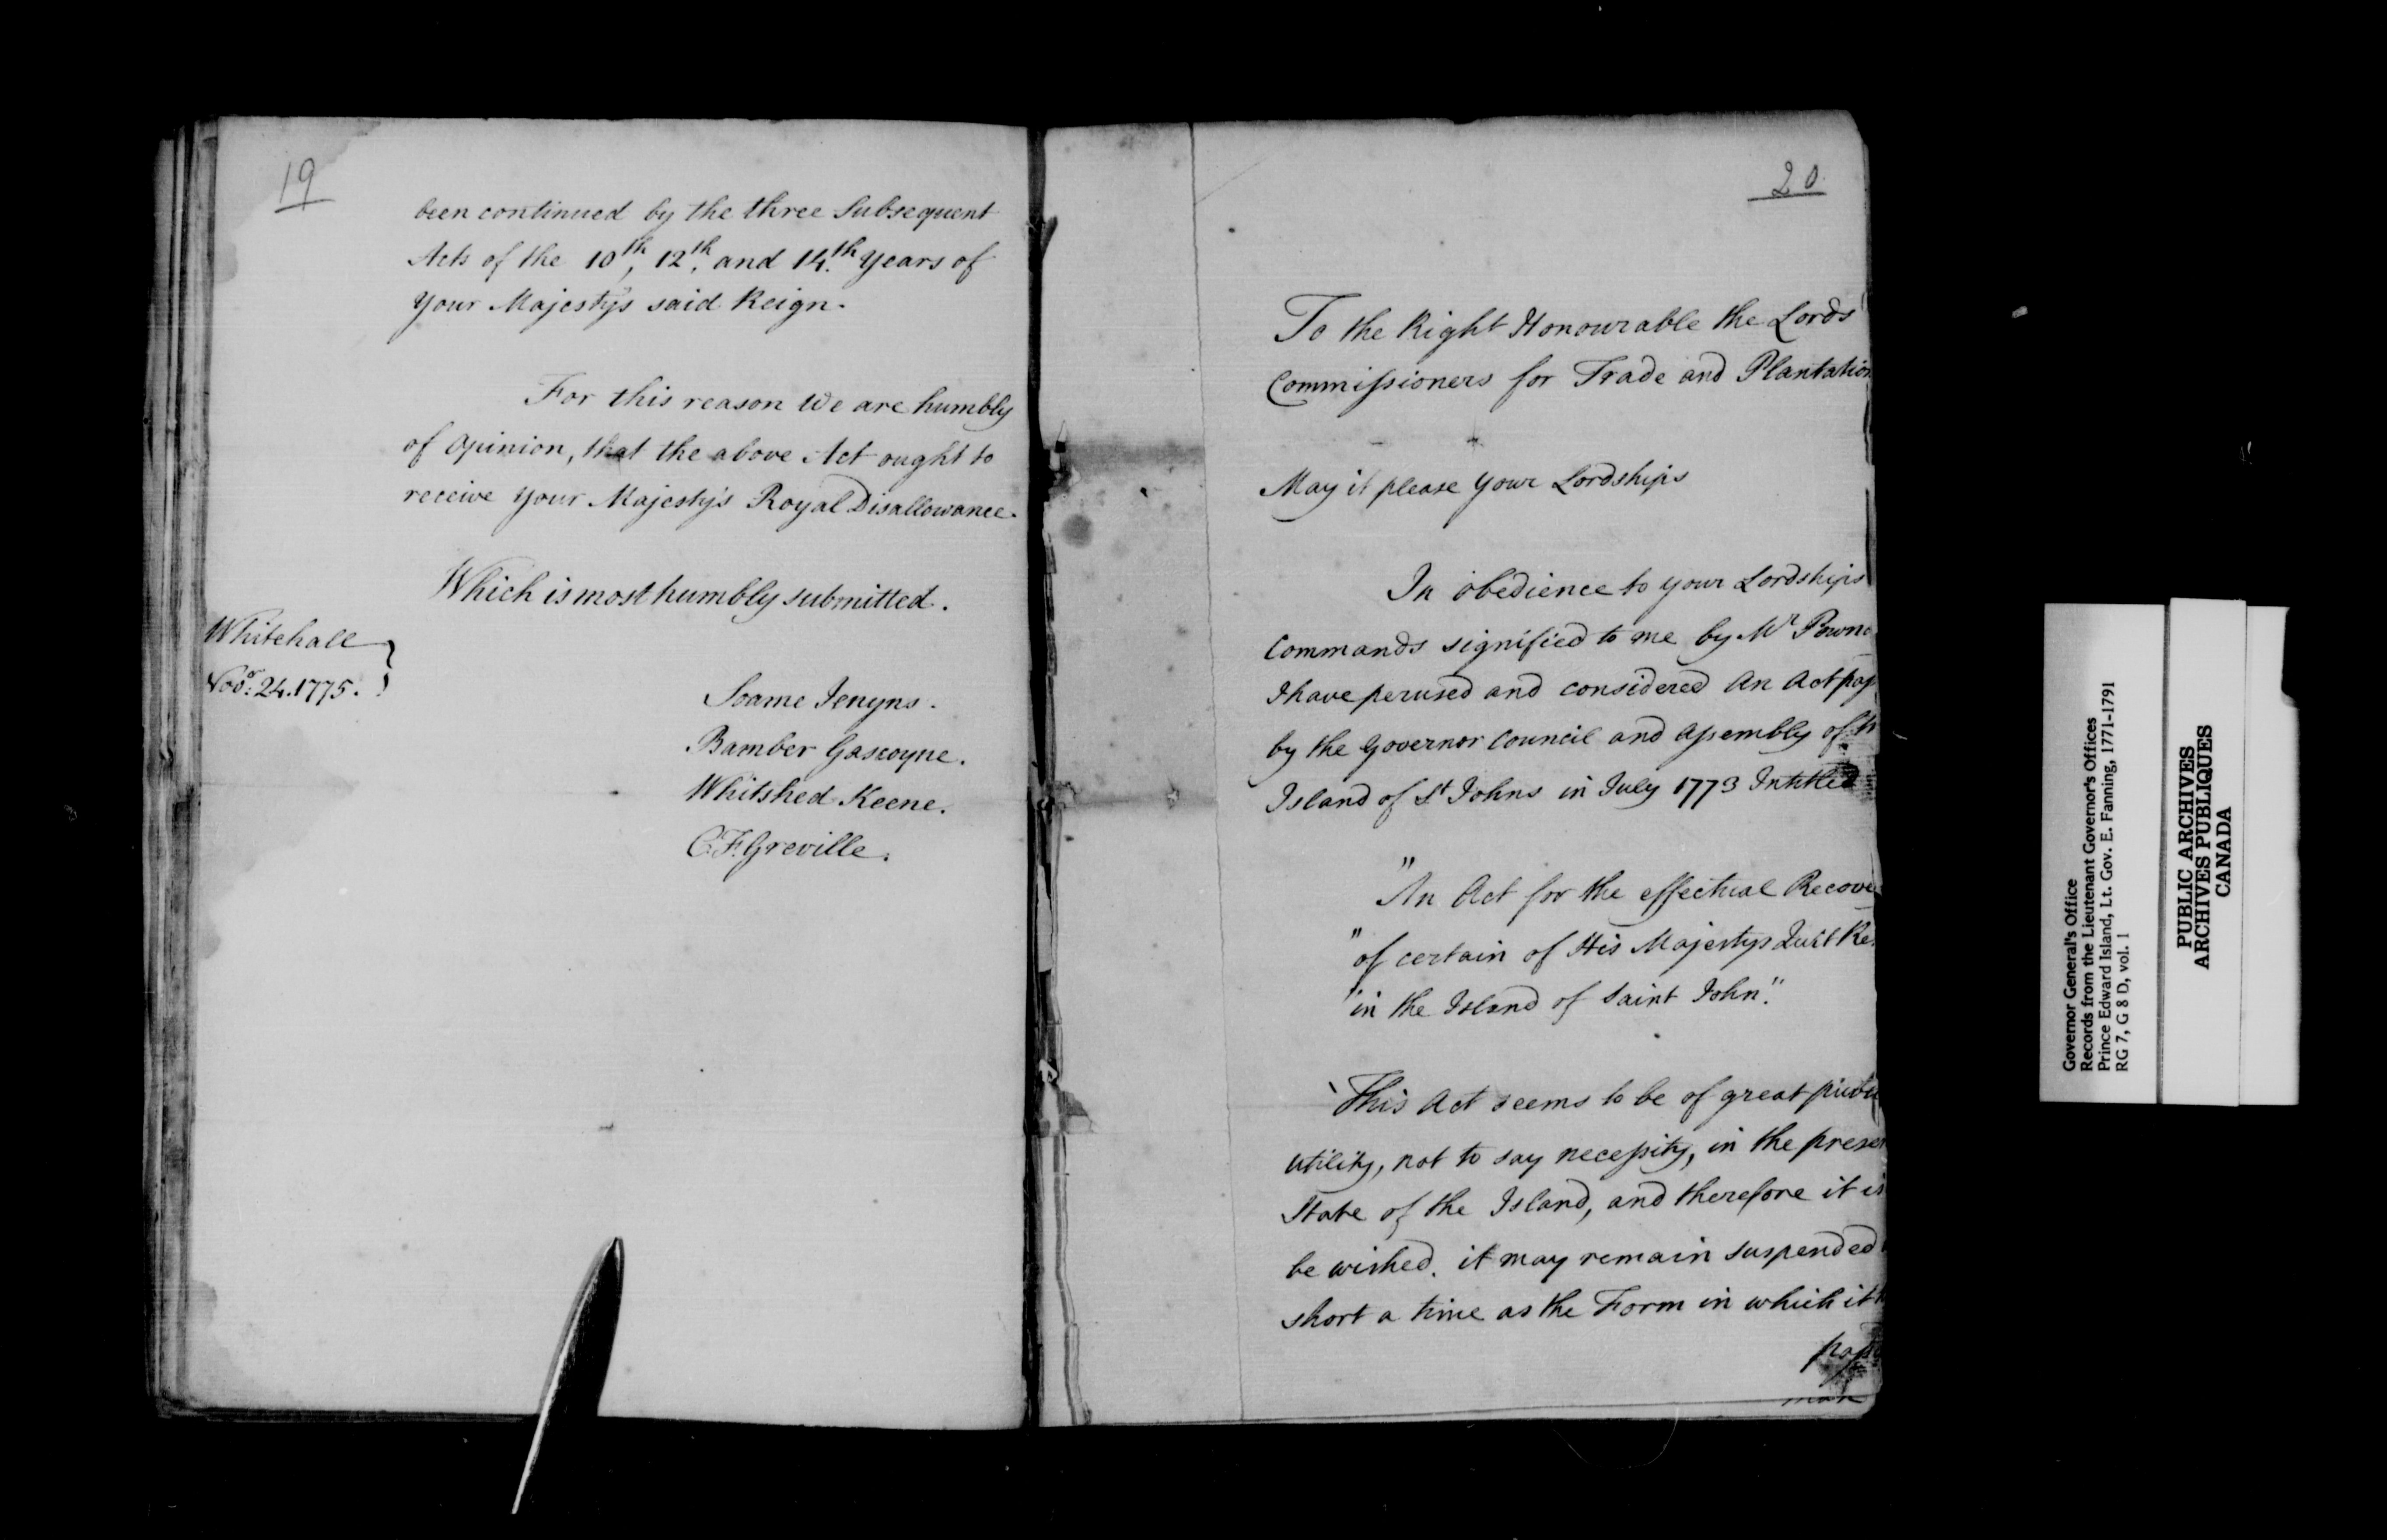 19
been continued by the three Subsequent
Acts of the 10th, 12th. and 14.th Years of
Your Majestys said Reign.
For this reason We are humbly
of Opinion, that the above Act ought to
receive Your Majesty's Royal Disallowance.
Which is most humbly submitted.
Whitehall
Novr. 24. 1775.
Soame Jenyns.
Bamber Gascoyne.
Whitshed Keene.
C. F. Greville.
20
To the Right Honourable the Lords
Commissioners for Trade and Plantation
May it please Your Lordships
In obedience to your Lordships
Commands signified to me by Mr Powna
I have perused and considered An Act pass
by the Governor Council and Assembly of th
Island of St Johns in July 1773 Intitled
"An Act for the effectual Recove
"of certain of His Majestys Quit Re
"in the Island of Saint John."
This Act seems to be of great
utility, not to say necessity, in the presen
State of the Island, and therefore it is
be wished. it may remain suspended
short a time as the Form in which it
Governor General's Office
Records from the Lieutenant Governor's Offices
Prince Edward Island, Lt. Gov. E. Fanning, 1771-1791
RG 7, G 8 D, vol. 1
PUBLIC ARCHIVES
ARCHIVES PUBLIQUES
CANADA